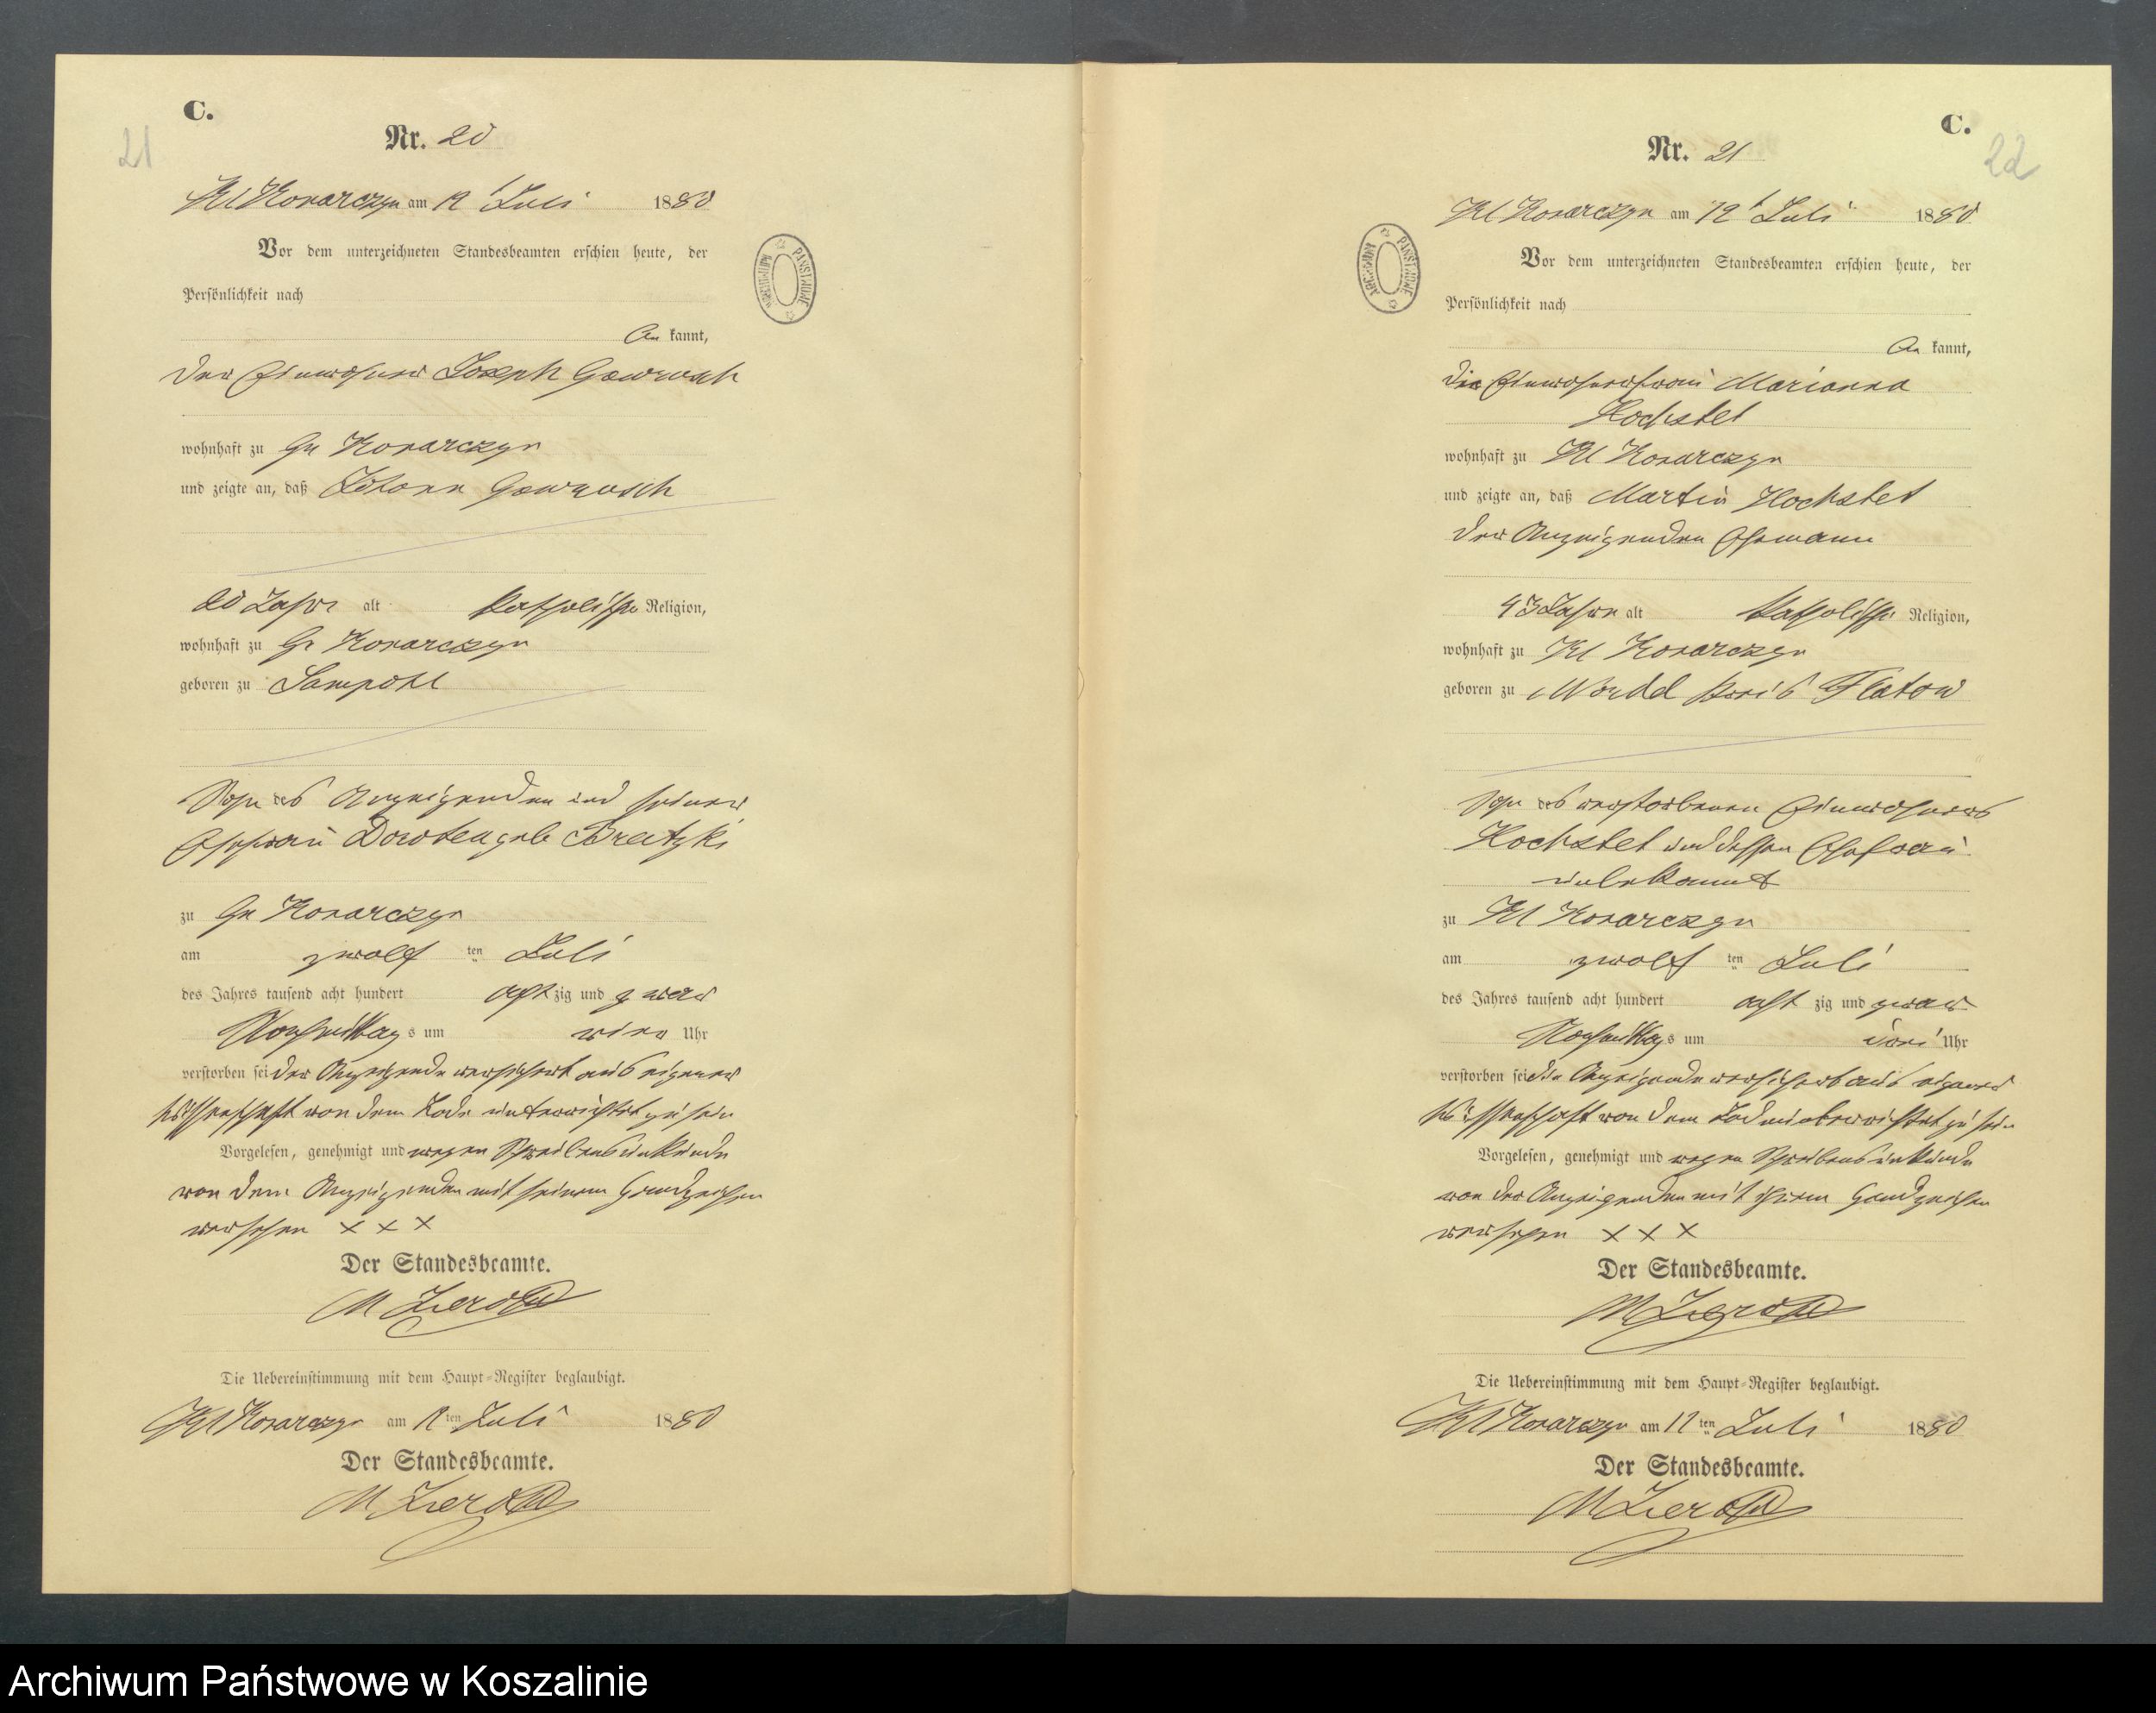 C.
21
Nr. 20
Kl Konarczyn am 12t Juli 1880
Vor dem unterzeichneten Standesbeamten erschien heute, der
Persönlichkeit nach
be kannt,
der Einwohner Joseph
wohnhaft zu Gr Konarczyn
und zeigte an, daß Johann
20 Jahre alt katholischer Religion,
wohnhaft zu Gr Konarczyn
geboren zu Sampohl
Sohn des Anzeigenden und seiner
Ehefrau Dorotea geb
zu Gr Konarczyn
am zwölf ten Juli
des Jahres tausend acht hundert acht zig und zwar
Nachmittags um vier Uhr
verstorben sei der Anzeigende versichert aus eigener
Wissenschaft von dem Tode unterrichtet zu sein
Vorgelesen, genehmigt und wegen Schreibensunkunde
von dem Anzeigenden mit seinem Handzeichen
versehen x x x
Der Standesbeamte.
Die Uebereinstimmung mit dem Haupt-Register beglaubigt.
Kl Konarczyn am 12 ten Juli 1880
Der Standesbeamte.
C.
22
Nr. 21
Kl Konarczyn am 12t Juli 1880
Vor dem unterzeichneten Standesbeamten erschien heute, der
Persönlichkeit nach
be kannt,
die Einwohnerfrau Marianna
Hochstet
wohnhaft zu Kl Konarczyn
und zeigte an, daß Martin Hochstet
der Anzeigenden Ehemann
43 Jahre alt katholischer Religion,
wohnhaft zu Kl Konarczyn
geboren zu Kreis Flatow
Sohn des verstorbenen Einwohners
Hochstet und dessen Ehefrau
unbekannt
zu Kl Konarczyn
am zwölf ten Juli
des Jahres tausend acht hundert acht zig und zwar
Nachmittags um drei Uhr
verstorben sei die Anzeigende versichert aus eigener
Wissenschaft von dem Tode unterrichtet zu sein
Vorgelesen, genehmigt und wegen Schreibensunkunde
von der Anzeigenden mit ihrem Handzeichen
versehen x x x
Der Standesbeamte.
Die Uebereinstimmung mit dem Haupt-Register beglaubigt.
Kl Konarczyn am 12 ten Juli 1880
Der Standesbeamte.
ARCHIWUM PAŃSTWOWE
Archiwum Państwowe w Koszalinie